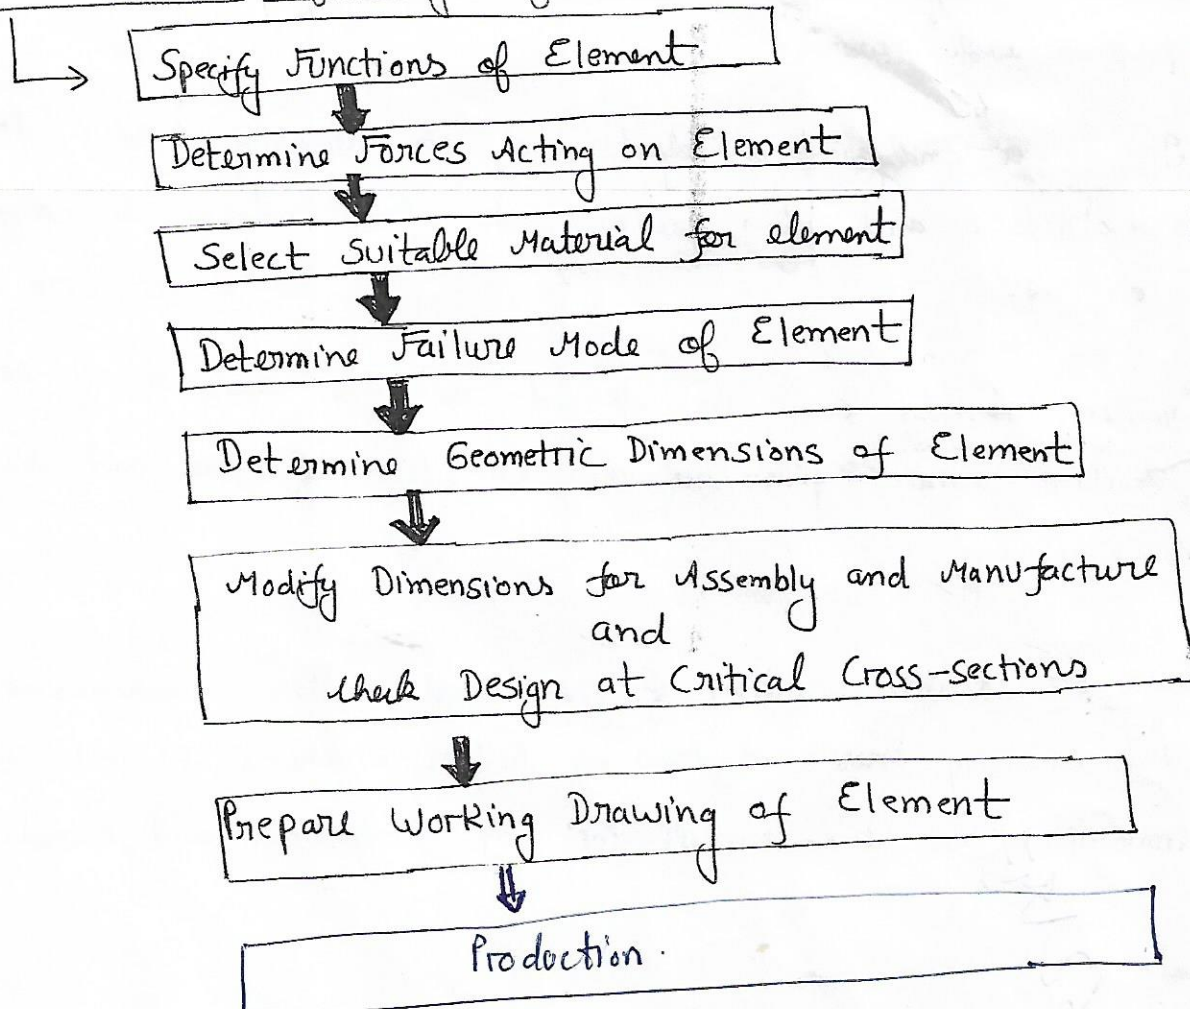 Specify Functions of Element
Determine Forces Acting on Element
Select Suitable Material for element
Determine Failure Mode of Element
Determine Geometric Dimensions of Element
Modify Dimensions for Assembly and Manufacture
and
Check Design at Critical Cross-sections
Prepare Working Drawing of Element
Production.